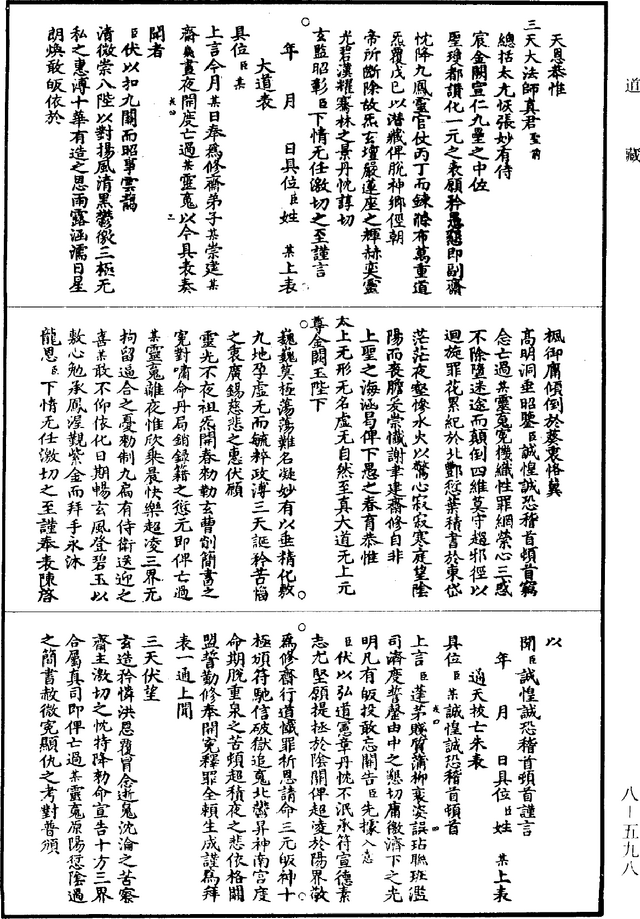 道藏
天恩恭惟
三天大法師真君聖前
總括太元恢張妙有侍
宸金闕宣仁九壘之中位
聖瓊都讚化一元之表願矜愚懇即副齋
忱降九鳳靈官仗丙丁而錬滌布萬重道
炁覆戊巳以潛藏俾脫神鄉徑朝
帝所斷除故炁玄壇嚴蓮座之輝赫奕靈
光碧漢耀騫林之景丹忱諄切
玄監昭彰臣下情无任激切之至謹言
年 月 日具位臣姓 某上表
大道表
具位臣某
上言今月某日奉為修齋弟子某崇建某
齋幾晝夜開度亡過某靈䰟以今具表奏
聞者
臣伏以扣九關而昭事雲鶴
清微崇八陛以對揚風清黑鬱徼三極无
私之惠溥十華有造之恩雨露涵濡日星
朗煥敢皈依於
楓御庸傾倒於葵衷恪冀
高明洞垂昭鑒臣誠惶誠恐稽首頓首竊
念亡過某靈䰟冤機織性罪網縈心三惑
不除墮迷途而顛倒四維莫守趨邪徑以
迴旋罪花累紀於北酆愆葉積書於東岱
茫茫夜壑慘水火以驚心寂寂寒庭望陰
陽而喪膽爰崇懺謝聿建齋修自非
上聖之海涵曷俾下愚之春育恭惟
太上无形无名虛无自然至真大道无上元
尊金闕玉陛下
巍巍莫極蕩蕩難名凝妙有以垂精化敷
九地孕虛无而毓粹政溥三天誕矜苦惱
之衷廣錫慈悲之惠伏願
靈光不夜祖炁開春勑勒玄曹削簡書之
冤對嘯命丹局銷錄籍之愆尤即俾亡過
某靈䰟離夜惟欣乘晨快樂超凌三界无
拘留逼合之憂勑制九扃有侍衛送迎之
喜某敢不仰依化日期暢玄風登碧玉以
敷心勉承鳳渥覲紫金而拜手永沐
龍恩臣下情无任激切之至謹奉表陳啓
以
聞臣誠惶誠恐稽首頓首謹言
年 月 日具位臣姓 某上表
通天拔亡朱表
具位臣某誠惶誠恐稽首頓首
上言臣蓬茅賤質蒲柳衰姿誤玷聮班濫
司濟度誓罄由中之懇切庸徼濟下之光
明凡有皈投敢忘開告臣先據入意
臣伏以弘道憲章丹忱不泯承符宣德素
志尤堅願提拯於陰關俾超凌於陽界敬
為修齋行道懺罪祈恩請命三元皈神十
極頒符馳信破獄追䰟北酆昇神南宮度
命期脫重泉之苦頓超積夜之悲依格關
盟誓勤修奉開冤釋罪全賴生成謹為拜
表一通上聞
三天伏望
玄造矜憐洪恩覆冒念逝䰟沈淪之苦察
齋主激切之忱特降勑命宣告十方三界
合屬真司即俾亡過某靈䰟原陽愆陰過
之簡書赦微冤顯仇之考對普頒
八―五九八